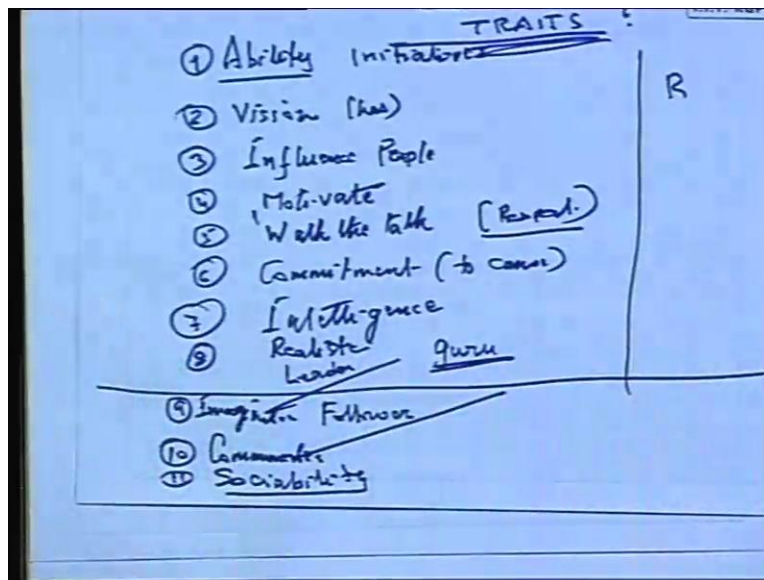 TRAITS :
① Ability Initiator
② Vision (has)
R
③ Influence People
④ Motivate
⑤ 'Walk the talk (Respect.)
⑥ Commitment (to cause)
⑦ Intelligence
⑧ Realistic
Leader guru
⑨ Follower
⑩
⑪ Sociability